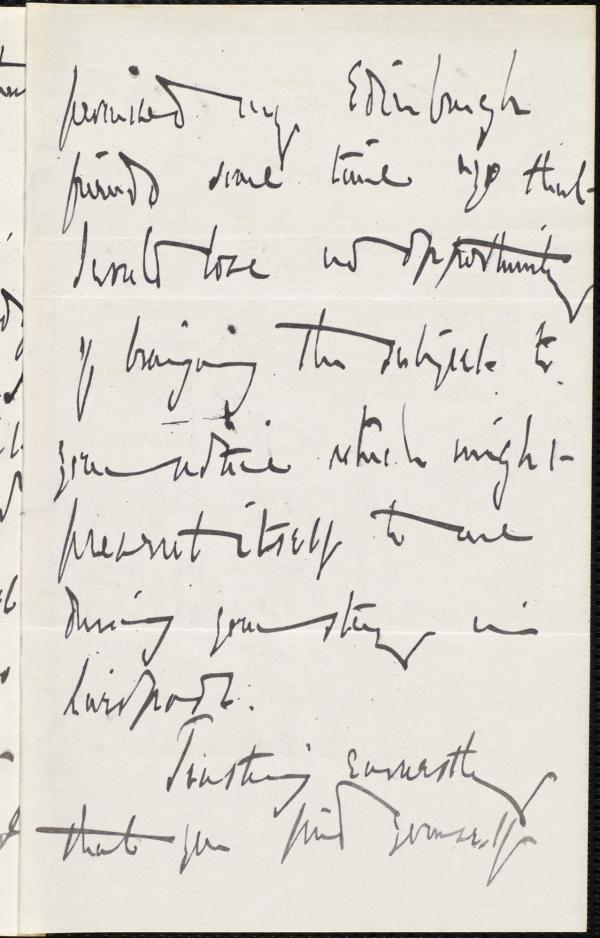 promised my Edinburgh
friends some time ago that
I would lose no opportunity
of bringing the subject to
your notice which might
present itself to me
during your stay in
Liverpool.
Trusting earnestly
that you find yourself